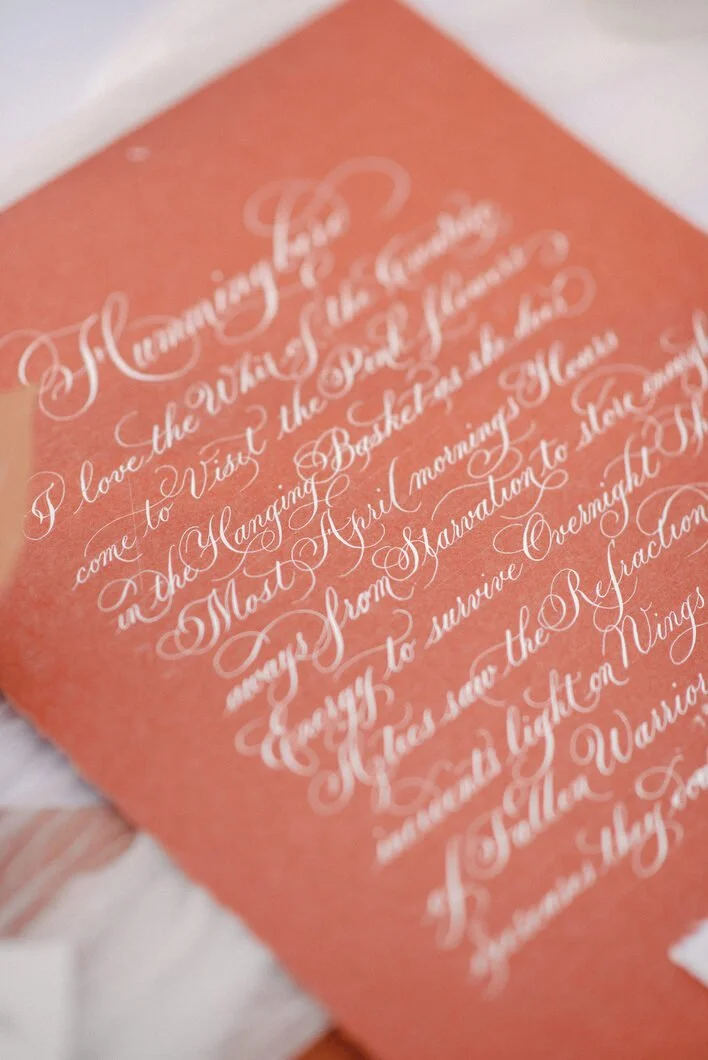 Hummingbird
I love the Whir of the
come to Visit the Pink flowers
in the Hanging Basket as she does
Most April mornings Hours
aways from Starvation to store enough
Energy to survive Overnight Th
Aztecs saw the Refraction
light on Wings
of Fallen Warrior
they